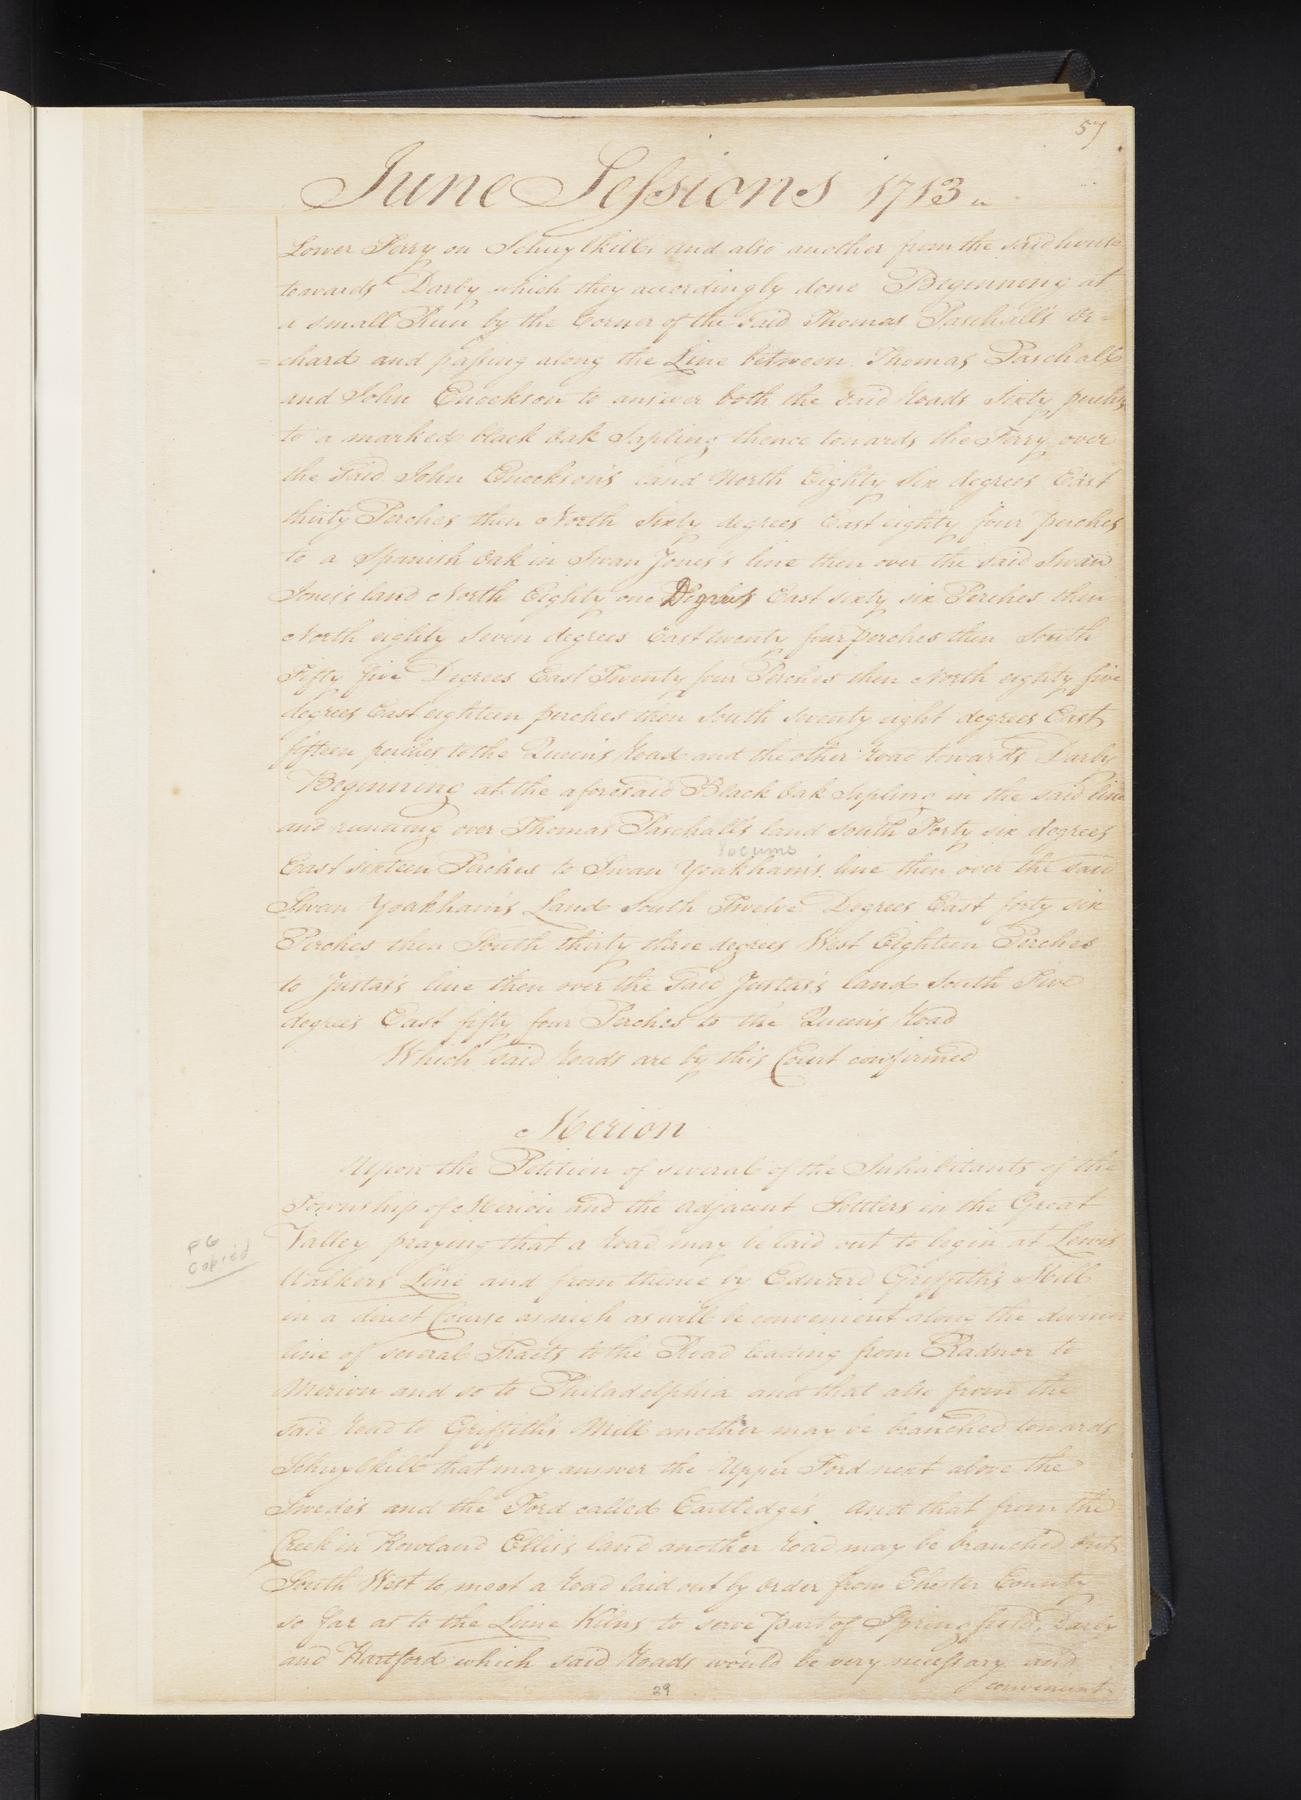 57
June Sessions 1713
Lower Ferry on Schuylkill, and also another from the said house
towards Darby which they accordingly done Beginning at
a small Run by the Corner of the said Thomas Paschall's Or=
=chard and passing along the Line between Thomas Paschall
and John Enockson to answer both the said Roads Sixty perches
to a marked black Oak Sapling thence towards the Ferry over
the Said John Enockson's land North Eighty Six degrees East
thirty Perches then North Sixty degrees East eighty four perches
to a Spanish Oak in Swan Jones's line then over the said Swan
Jones's land North Eighty one Degrees East sixty six Perches then
North eighty Seven degrees East twenty four perches then South
Fifty five Degrees East Twenty four Perches then North eighty five
degrees East eighteen perches then South seventy eight degrees East
fifteen perches to the Queen's Road and the other Road towards Darby
Beginning at the aforesaid Black Oak Sapling in the said line
and running over Thomas Paschall's land South Forty six degrees
Yocums
East sixteen Perches to Swan Yoakham's line then over the said
Swan Yoakham's Land South Twelve Degrees East forty six
Perches then South thirty three degrees West Eighteen Perches
to Justas's line then over the Said Justas's land South Five
degrees East fifty four Perches to the Queen's Road
Which said Roads are by this Court confirmed
Merion
Upon the Petition of several of the Inhabitants of the
Township of Merion and the adjacent Settlers in the Great
Valley praying that a Road may be laid out to begin at Lewis
PG
Copied
Walkers Line and from thence by Edward Griffith's Mill
in a direct Course as nigh as will be convenient along the division
line of several Tracts to the Road leading from Radnor to
Merion and so to Philadelphia and that also from the
said Road to Griffith's Mill another may be branched towards
Schuylkill that may answer the Upper Ford next above the
Swedes and the Ford called Eastledge's And that from the
Creek in Rowland Ellis's land another Road may be branched out
South West to meet a Road laid out by Order from Chester County
so far as to the Lime Kilns to serve part of Springfield, Darby
and Hartford which said Roads would be very necessary and
convenient
29